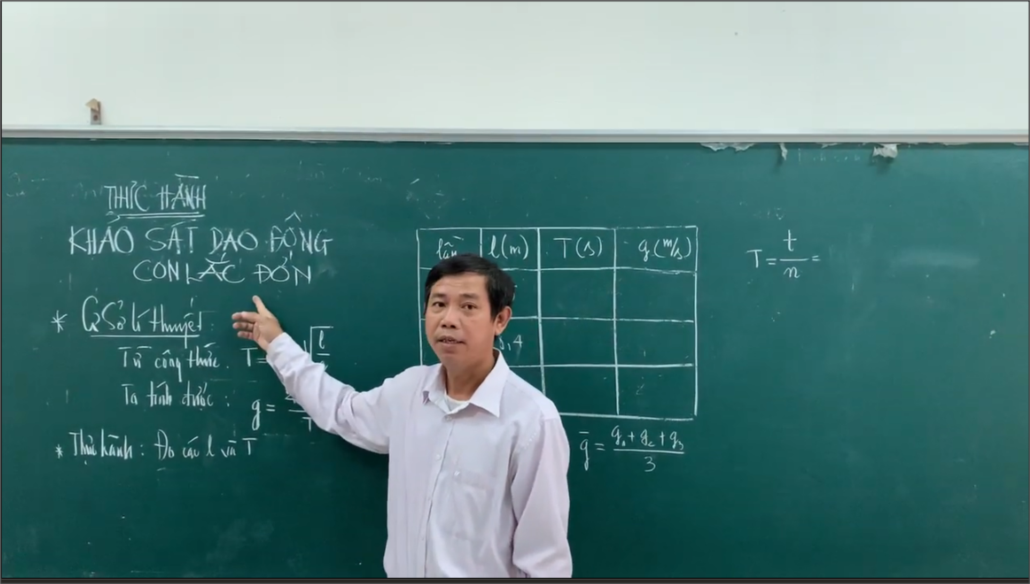 THỰC HÀNH
KHẢO SÁT DAO ĐỘNG
CON LẮC ĐƠN
* Cơ Sở lí thuyết:
Từ công thức: T=
√l
Ta tính được:
g =
T
* Thực hành: Đo các l và T
lần l(m) T(s) g(m/s)
,4
ḡ = (g₁ + g₂ + g₃)/3
T = t/n =